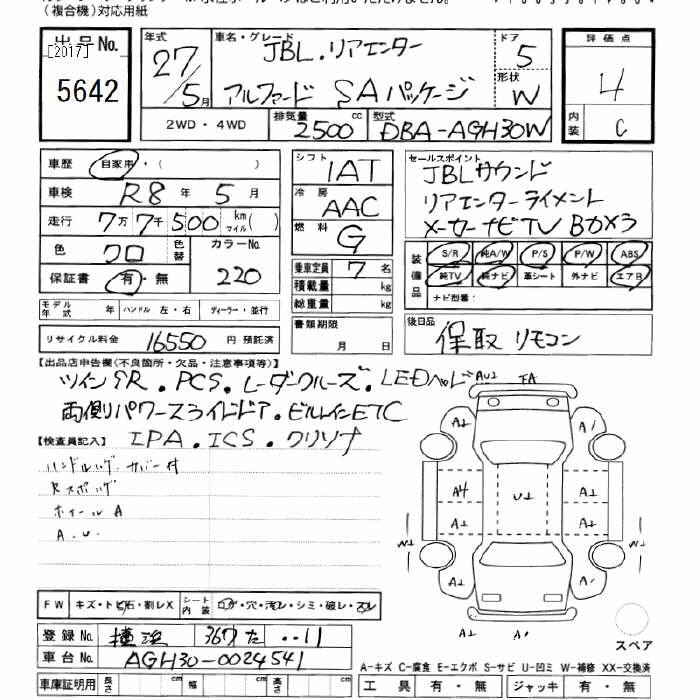 (複合機)対応用紙
出品No.
[2017]
5642
年式
27/5月
車名・グレード
JBL.リアエンター
アルファード SAパッケージ
ドア
5
形状
W
評価点
4
内装
C
2WD・4WD
排気量 2500 cc
型式 DBA-AGH30W
車歴 自家用・( )
車検 R8年 5月
走行 7万7千500 km マイル( )
色 クロ
色替
カラーNo. 220
保証書 有・無
モデル年式 年 ハンドル 左・右 ディーラー・並行
リサイクル料金 16550 円 預託済
シフト
IAT
冷房
AAC
燃料
G
乗車定員 7名
積載量 kg
総重量 kg
書類期限
月 日
セールスポイント
JBLサウンド
リアエンターテイメント
メーカーナビTV Bカメラ
装備品
S/R 純A/W P/S P/W ABS
純TV 純ナビ 革シート 外ナビ エアB
ナビ型番:
後日品
保取 リモコン
【出品店申告欄(不良箇所・欠品・注意事項等)】
ツインSR.PCS.レーダークルーズ.LEDヘッド
両側パワースライドドア.ビルトインETC
【検査員記入】
IPA.ICS.クリソナ
ハンドル
カバー付
ホイールA
A.U.
AU2
FA
A1
A1
A1
A4
A1
U1
A1
A1
W1
W1
A1
A1
A1
A1
FW キズ・トビ石・割レX
シート内装 コゲ・穴・汚レ・シミ・破レ・スレ
登録No. 横浜 367 た ‥11
車台No. AGH30-0024541
車庫証明用 長さ cm 幅 cm 高さ cm
スペア
A-キズ C-腐食 E-エクボ S-サビ U-凹ミ W-補修 XX-交換済
工具 有・無 ジャッキ 有・無